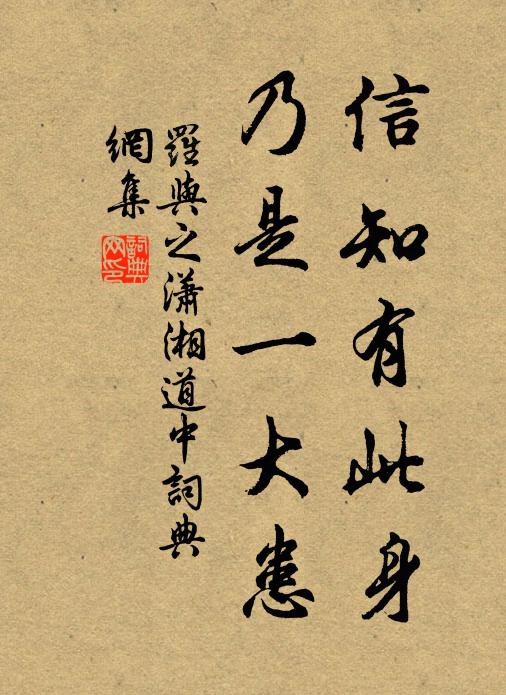 信知有此身
乃是一大患
羅與之瀟湘道中詞典
網集
詞典
网印